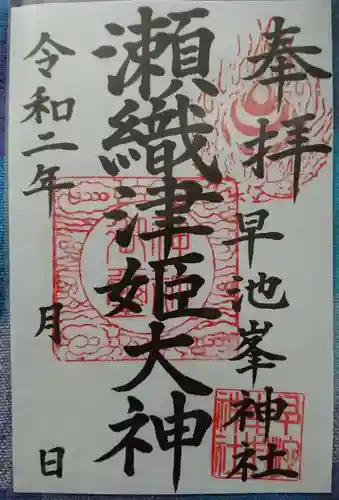 奉拝
早池峯神社
瀬織津姫大神
令和二年 月 日